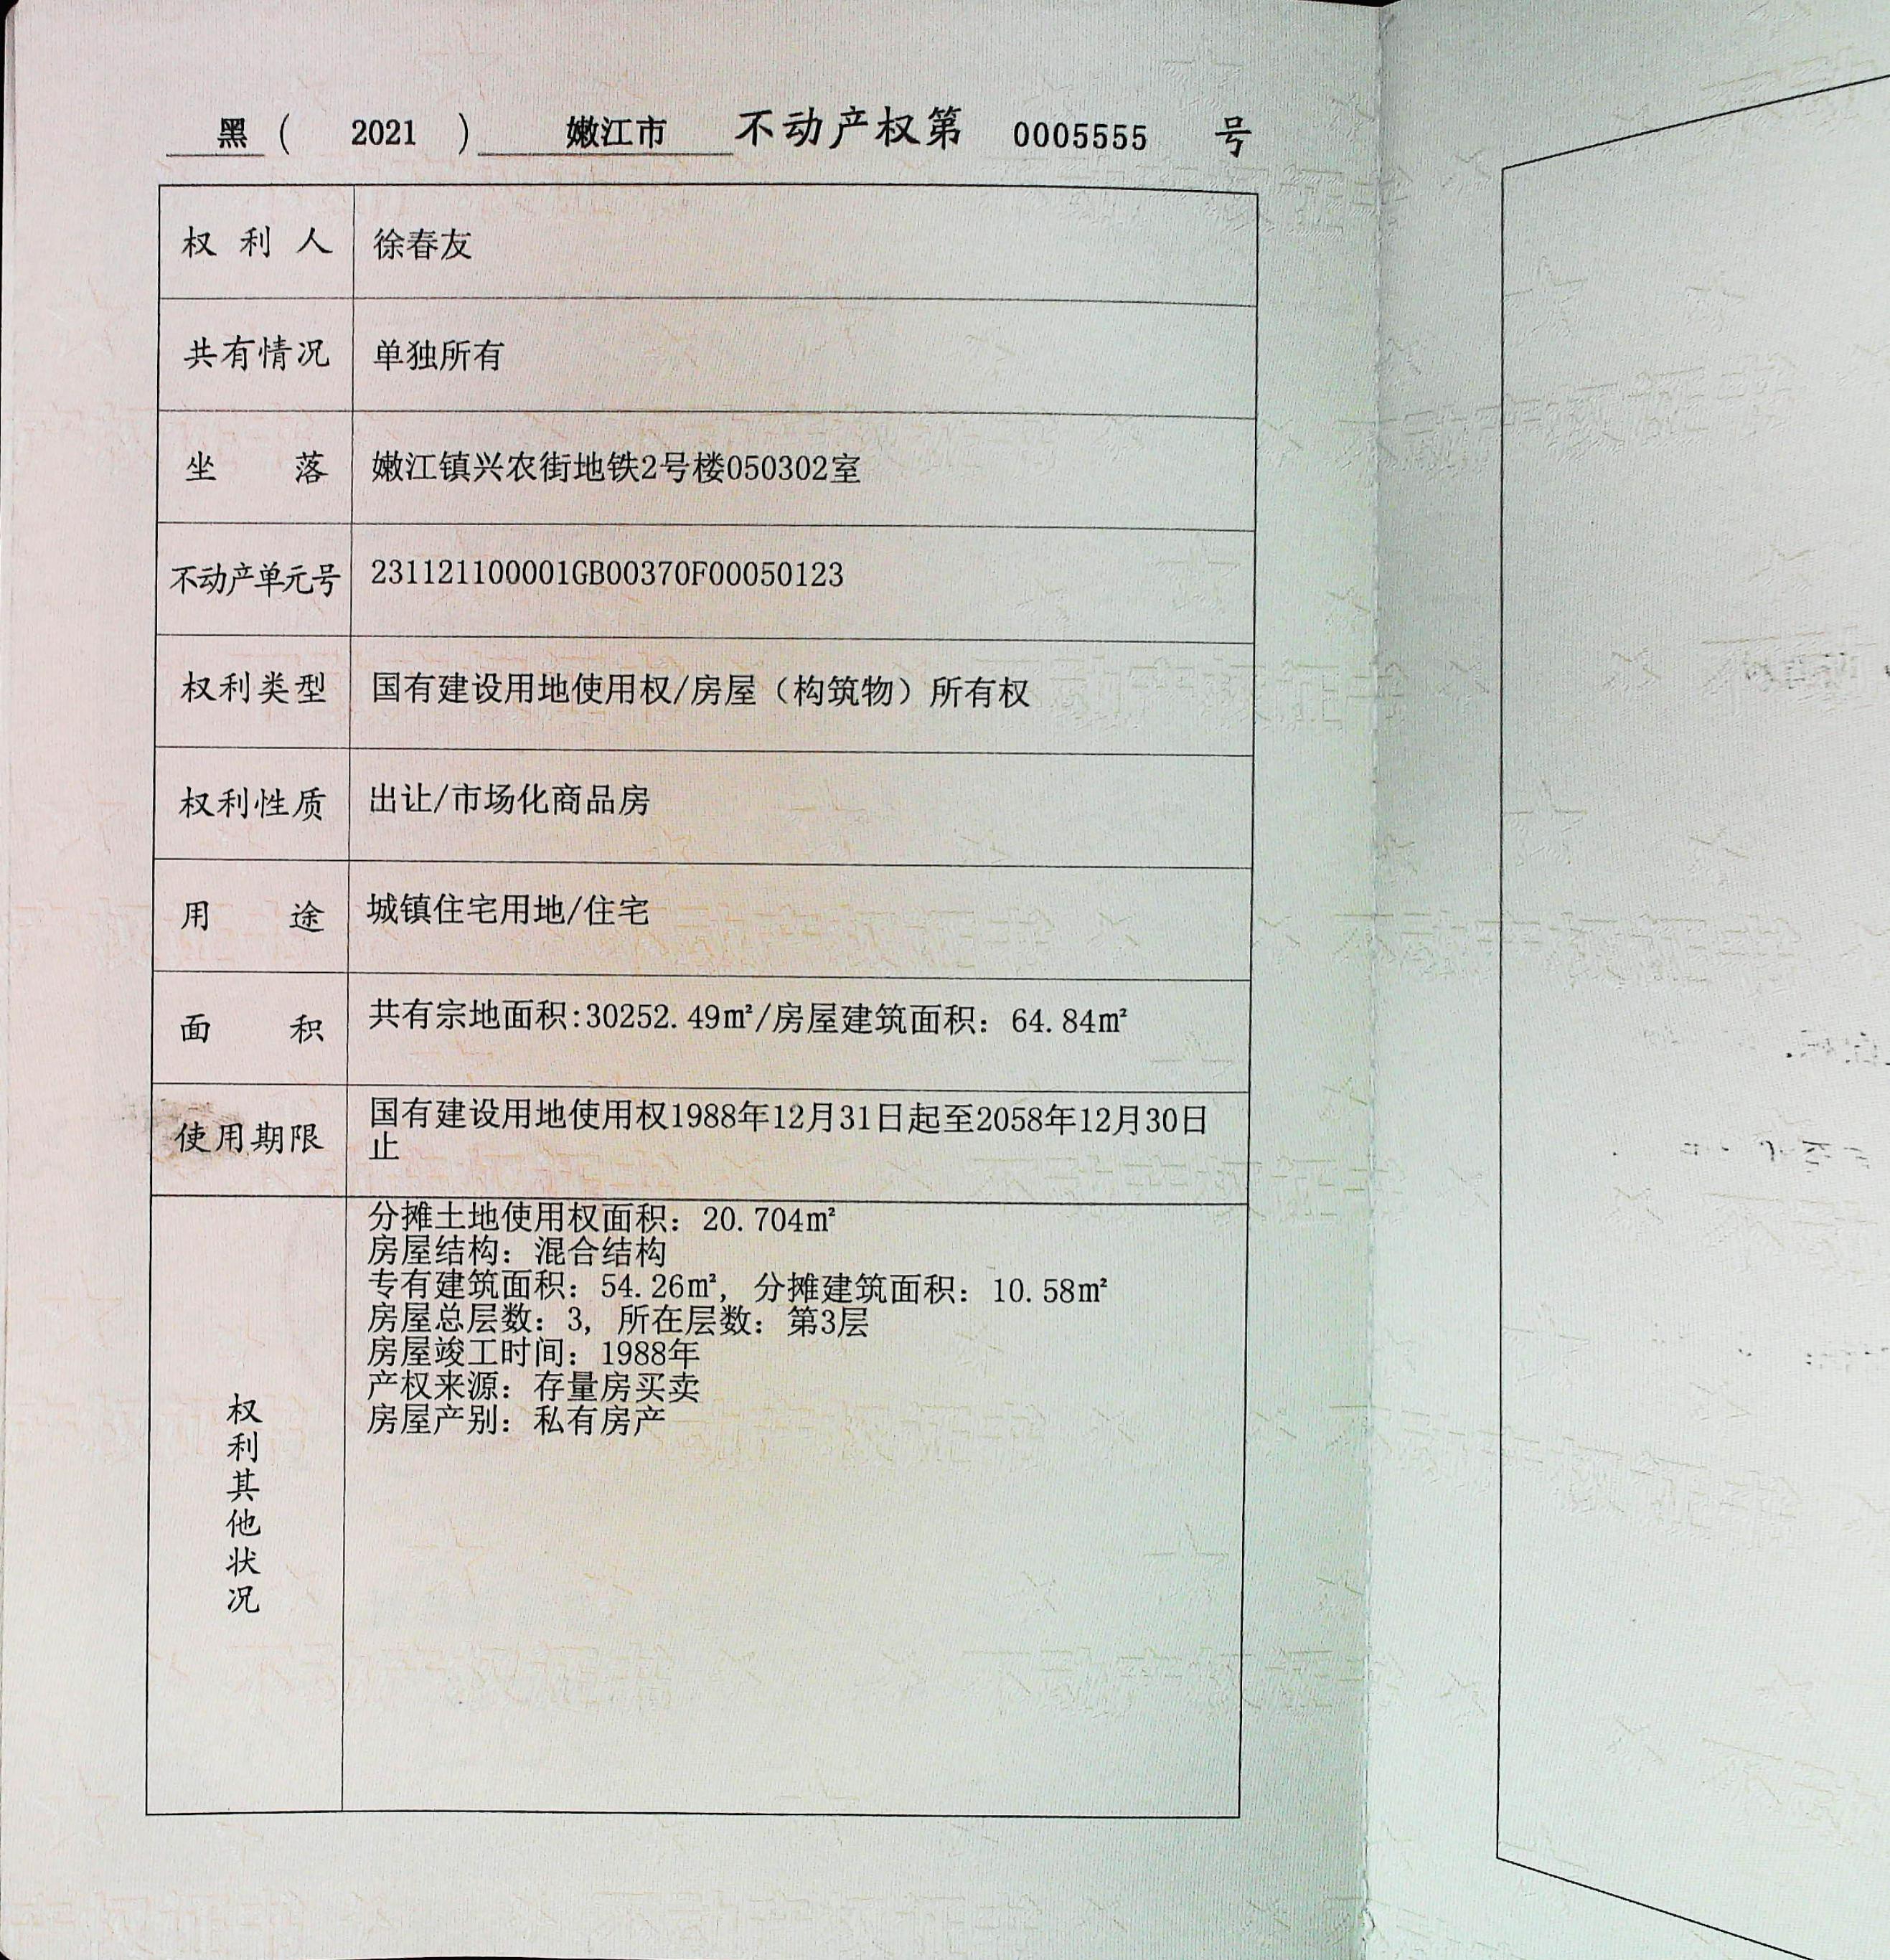 黑（ 2021 ） 嫩江市 不动产权第 0005555 号
权利人 徐春友
共有情况 单独所有
坐落 嫩江镇兴农街地铁2号楼050302室
不动产单元号 231121100001GB00370F00050123
权利类型 国有建设用地使用权/房屋（构筑物）所有权
权利性质 出让/市场化商品房
用途 城镇住宅用地/住宅
面积 共有宗地面积:30252.49㎡/房屋建筑面积：64.84㎡
使用期限 国有建设用地使用权1988年12月31日起至2058年12月30日
止
权利其他状况
分摊土地使用权面积：20.704㎡
房屋结构：混合结构
专有建筑面积：54.26㎡，分摊建筑面积：10.58㎡
房屋总层数：3，所在层数：第3层
房屋竣工时间：1988年
产权来源：存量房买卖
房屋产别：私有房产